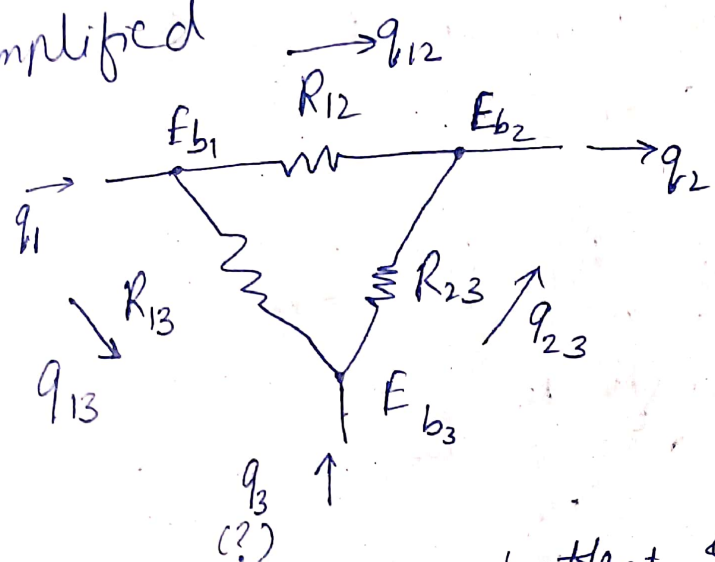 mplified
q12
R12
Eb1
Eb2
q2
q1
R13
R23
q23
q13
Eb3
q3
(?)